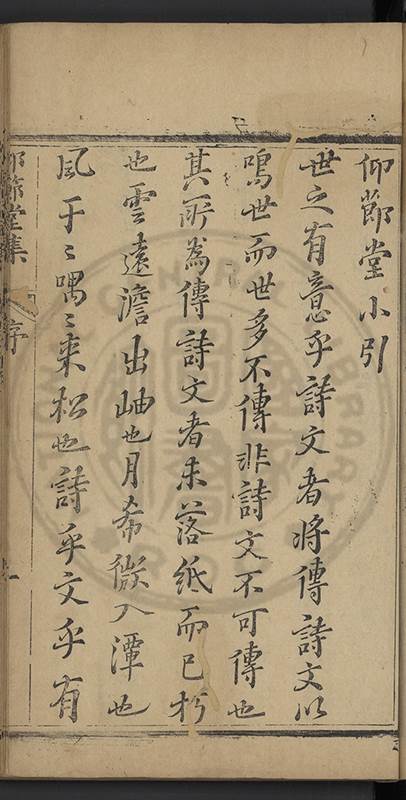 仰節堂小引
世之有意乎詩文者將傳詩文以
鳴世而世多不傳非詩文不可傳也
其所為傳詩文者未落紙而已朽
也雲遠澹出岫也月希微入潭也
風于〻喁〻来松也詩乎文乎有
仰節堂集 序 一